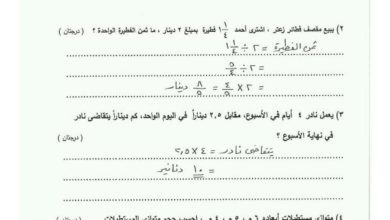 ٢) يبيع مقصف فطائر زعتر ، اشترى أحمد ١ ١/٤ فطيرة بمبلغ ٢ دينار ، ما ثمن الفطيرة الواحدة ؟ ( درجتان )
ثمن الفطيرة = ٢ ÷ ١ ١/٤
= ٢ ÷ ٥/٤
= ٢ × ٤/٥ = ٨/٥ دينار
٣) يعمل نادر ٤ أيام في الأسبوع، مقابل ٢,٥ ديناراً في اليوم الواحد، كم ديناراً يتقاضى نادر
في نهاية الأسبوع ؟ ( درجتان )
يتقاضى نادر = ٤ × ٢,٥
= ١٠ دنانير
٤) متوازي مستطيلات أبعاده ٦ ، ٥ ، ٤ ، احسب حجم متوازي المستطيلات